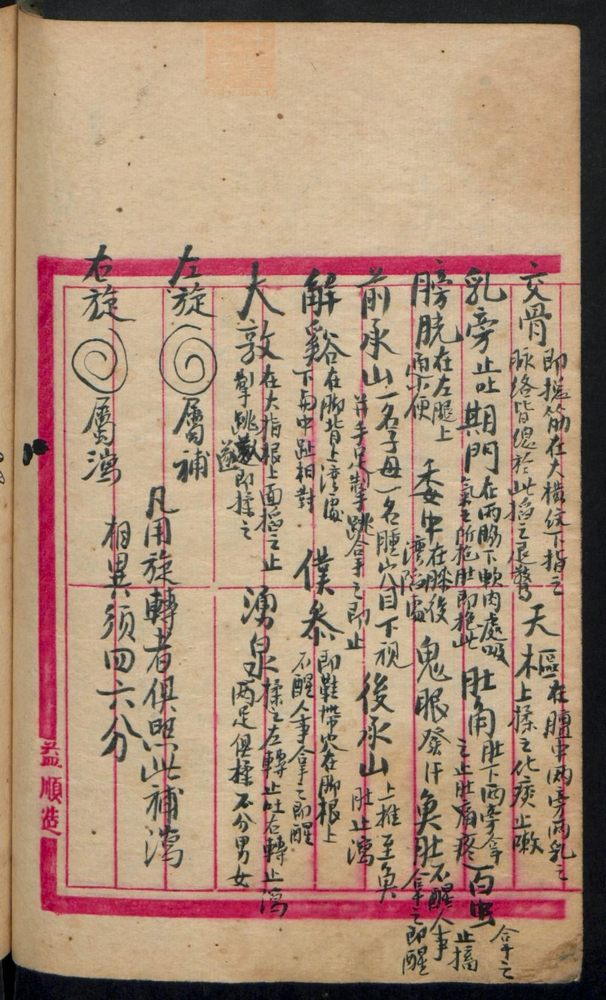 交骨 即總筋在大橫紋下指之脉絡皆總於此掐之良驚 天樞 在膻中兩旁兩乳之上揉之化痰止嗽
乳旁 止吐 期門 在兩脇下軟肉處吸氣之所抱肚即抱此 肚角 肚下兩旁拿之止肚痛疼 百虫 拿之止搐
膀胱 在左腿上而宗便 委中 在膝後灣陷處 鬼眼 發汗 魚肚 不醒人事拿之即醒
前承山 一名子母一名腫穴目下視並手足掣跳拿之即止 後承山 上推至魚肚止瀉
解谿 在脚背上灣處下與中趾相對 僕参 即鞋帶穴在脚根上不醒人事拿之即醒
大敦 在大指根上面掐之止掣跳即揉之 湧泉 揉之左轉止吐右轉止瀉兩足俱揉不分男女
左旋 屬補 凡用旋轉者俱照此補瀉
右旋 屬瀉 相異須四六分
益順造